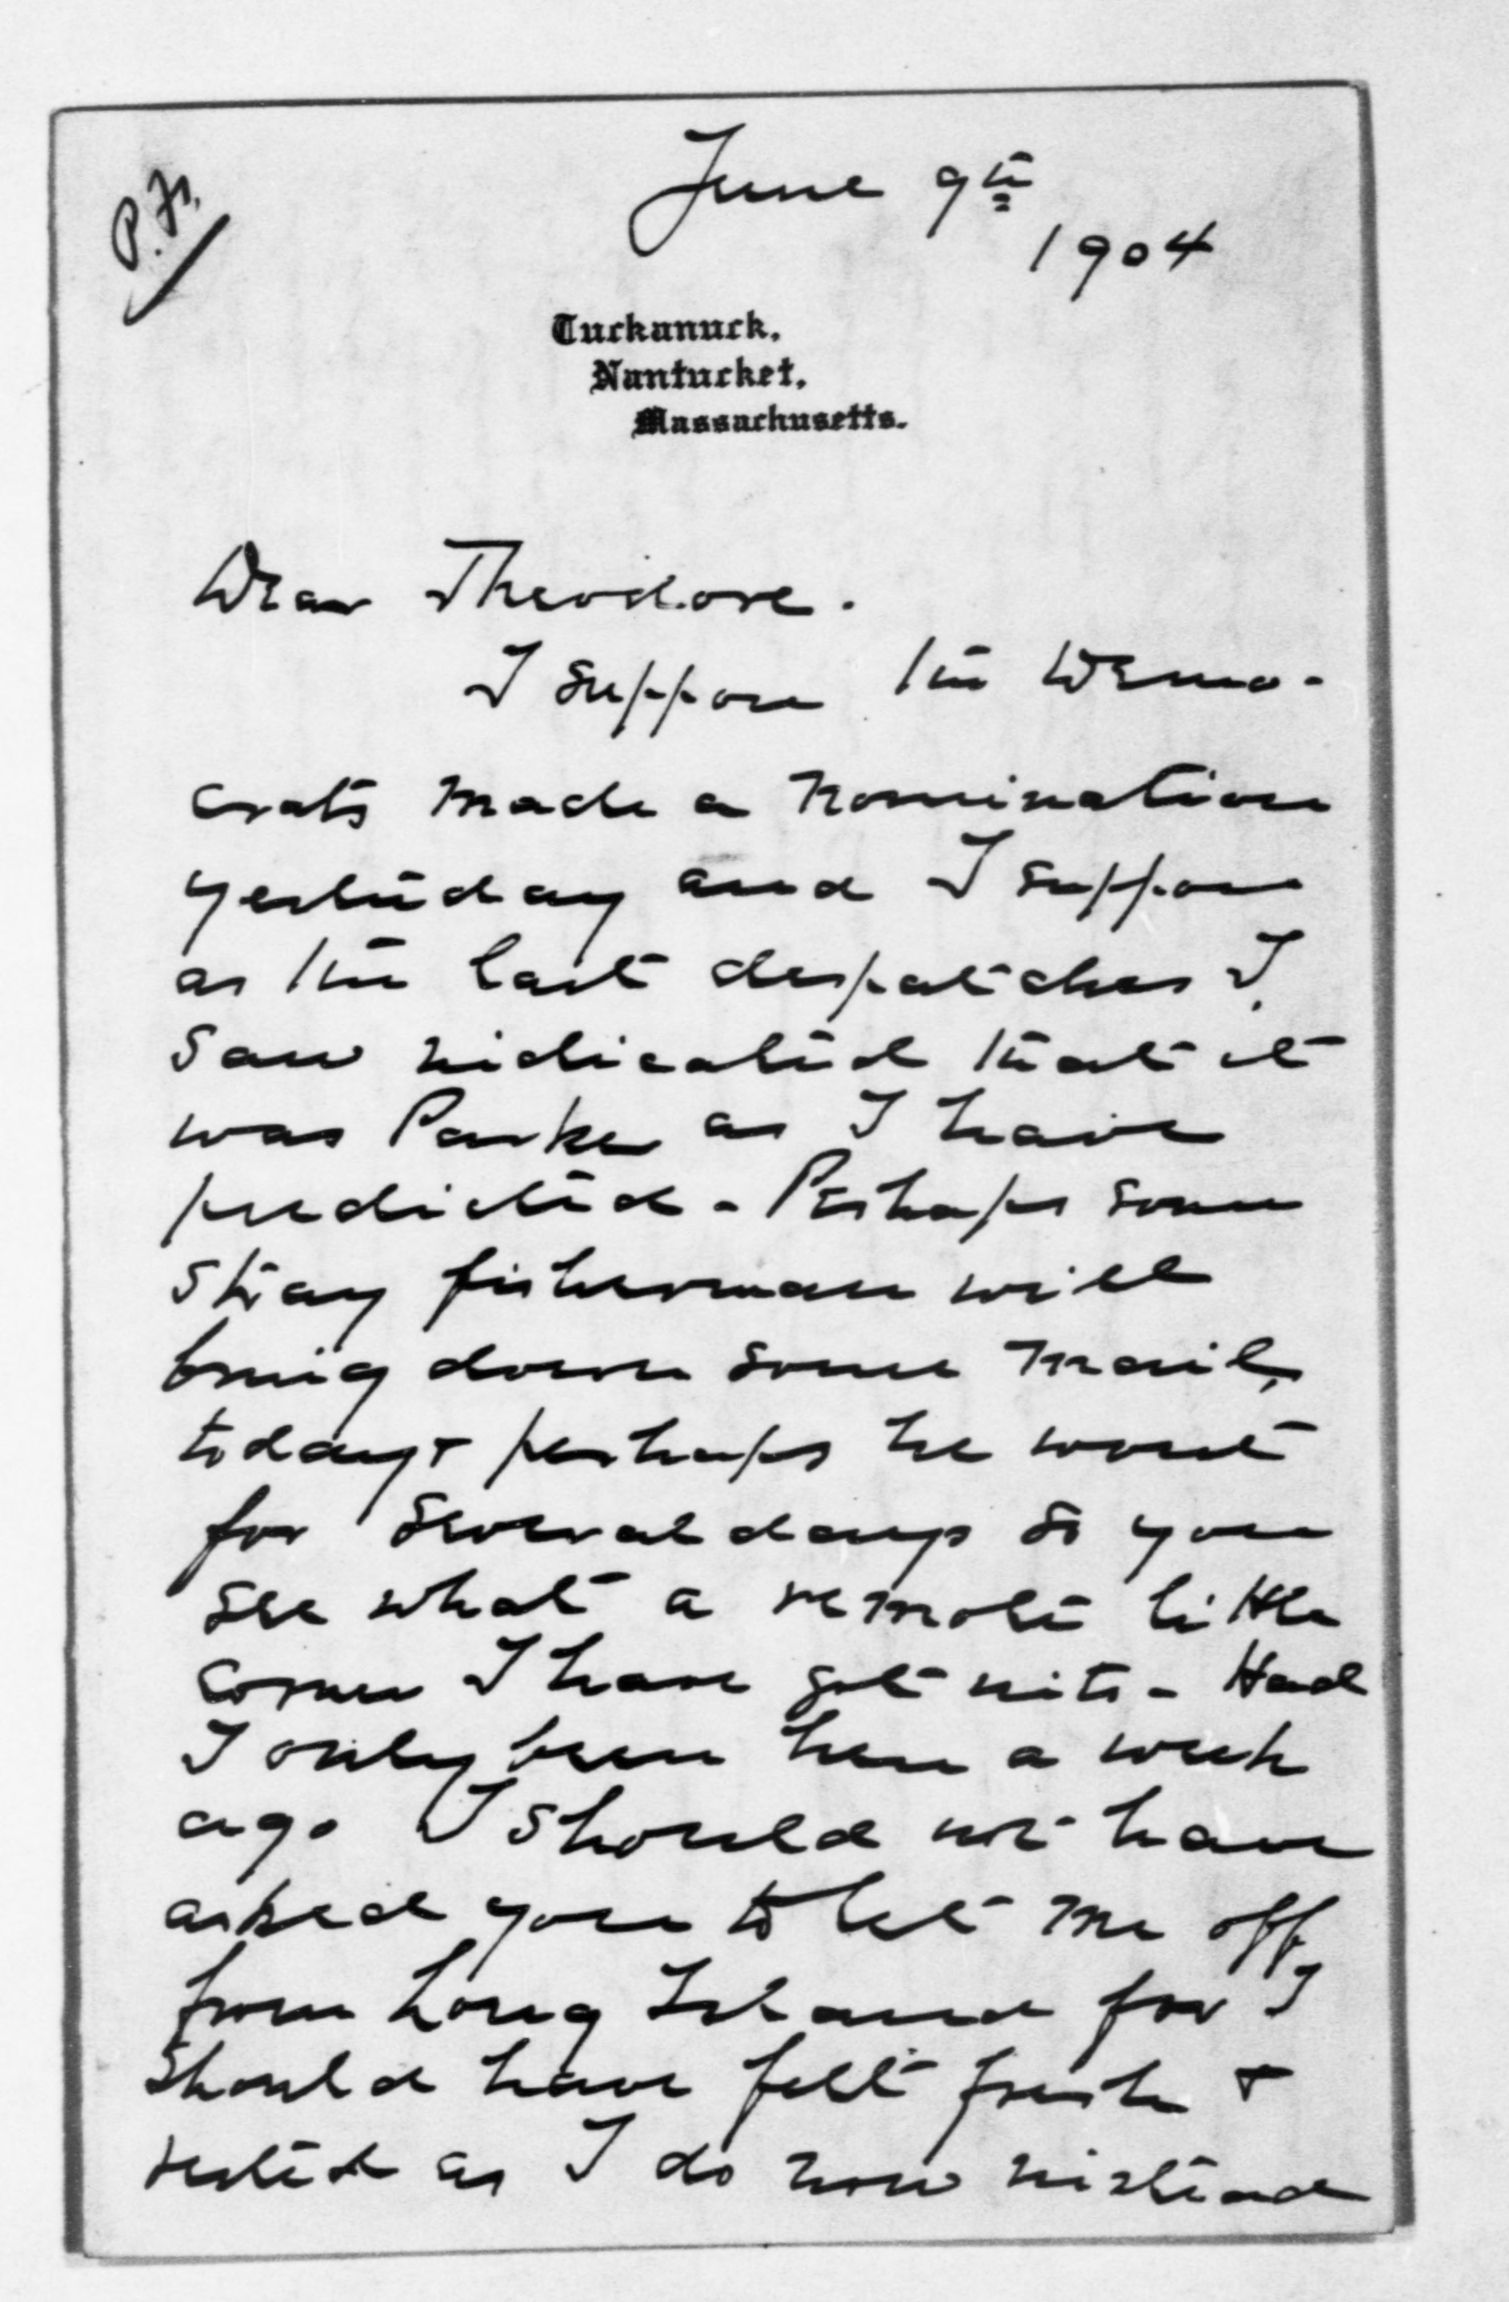 P.F.
June 9th
1904
Tuckanuck,
Nantucket,
Massachusetts.
Dear Theodore.
I suppose the Demo-
crats made a nomination
yesterday and I suppose
as the last despatches I
saw indicated that it
was Parker as I have
predicted - Perhaps some
stray fisherman will
bring down some mail
today & perhaps he wont
for several days so you
see what a remote little
corner I have got into - Had
I only been here a week
ago I should not have
asked you to let me off
from Long Island for I
should have felt fresh &
rested as I do now instead